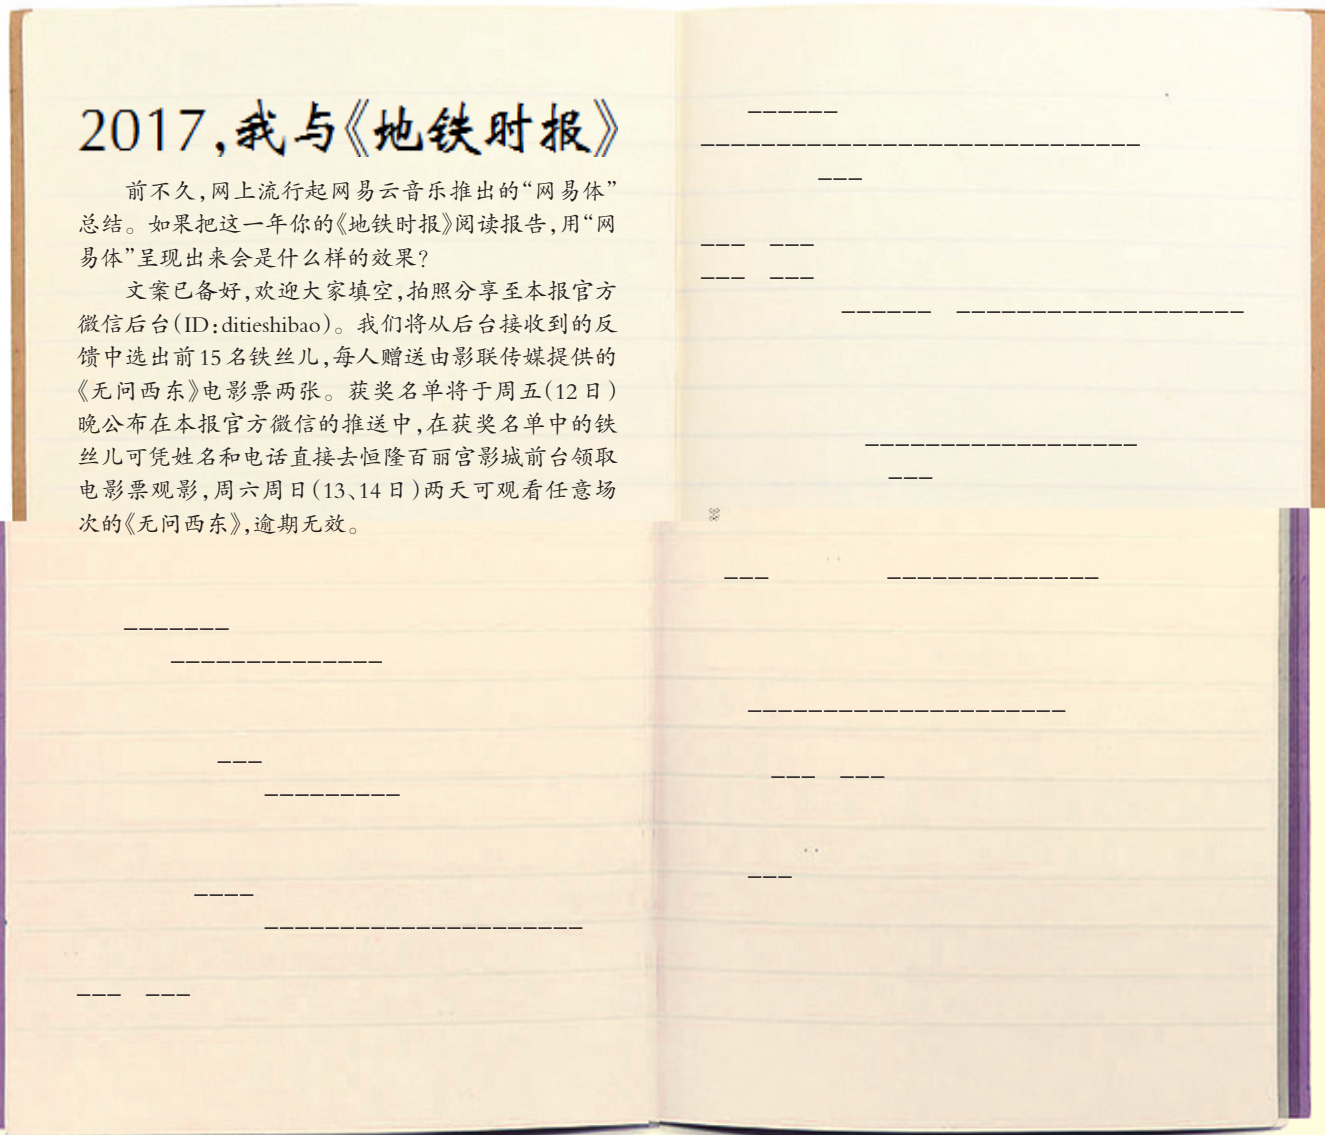 2017,我与《地铁时报》
前不久,网上流行起网易云音乐推出的“网易体”
总结。如果把这一年你的《地铁时报》阅读报告,用“网
易体”呈现出来会是什么样的效果?
文案已备好,欢迎大家填空,拍照分享至本报官方
微信后台(ID:ditieshibao)。我们将从后台接收到的反
馈中选出前15名铁丝儿,每人赠送由影联传媒提供的
《无问西东》电影票两张。获奖名单将于周五(12日)
晚公布在本报官方微信的推送中,在获奖名单中的铁
丝儿可凭姓名和电话直接去恒隆百丽宫影城前台领取
电影票观影,周六周日(13、14日)两天可观看任意场
次的《无问西东》,逾期无效。